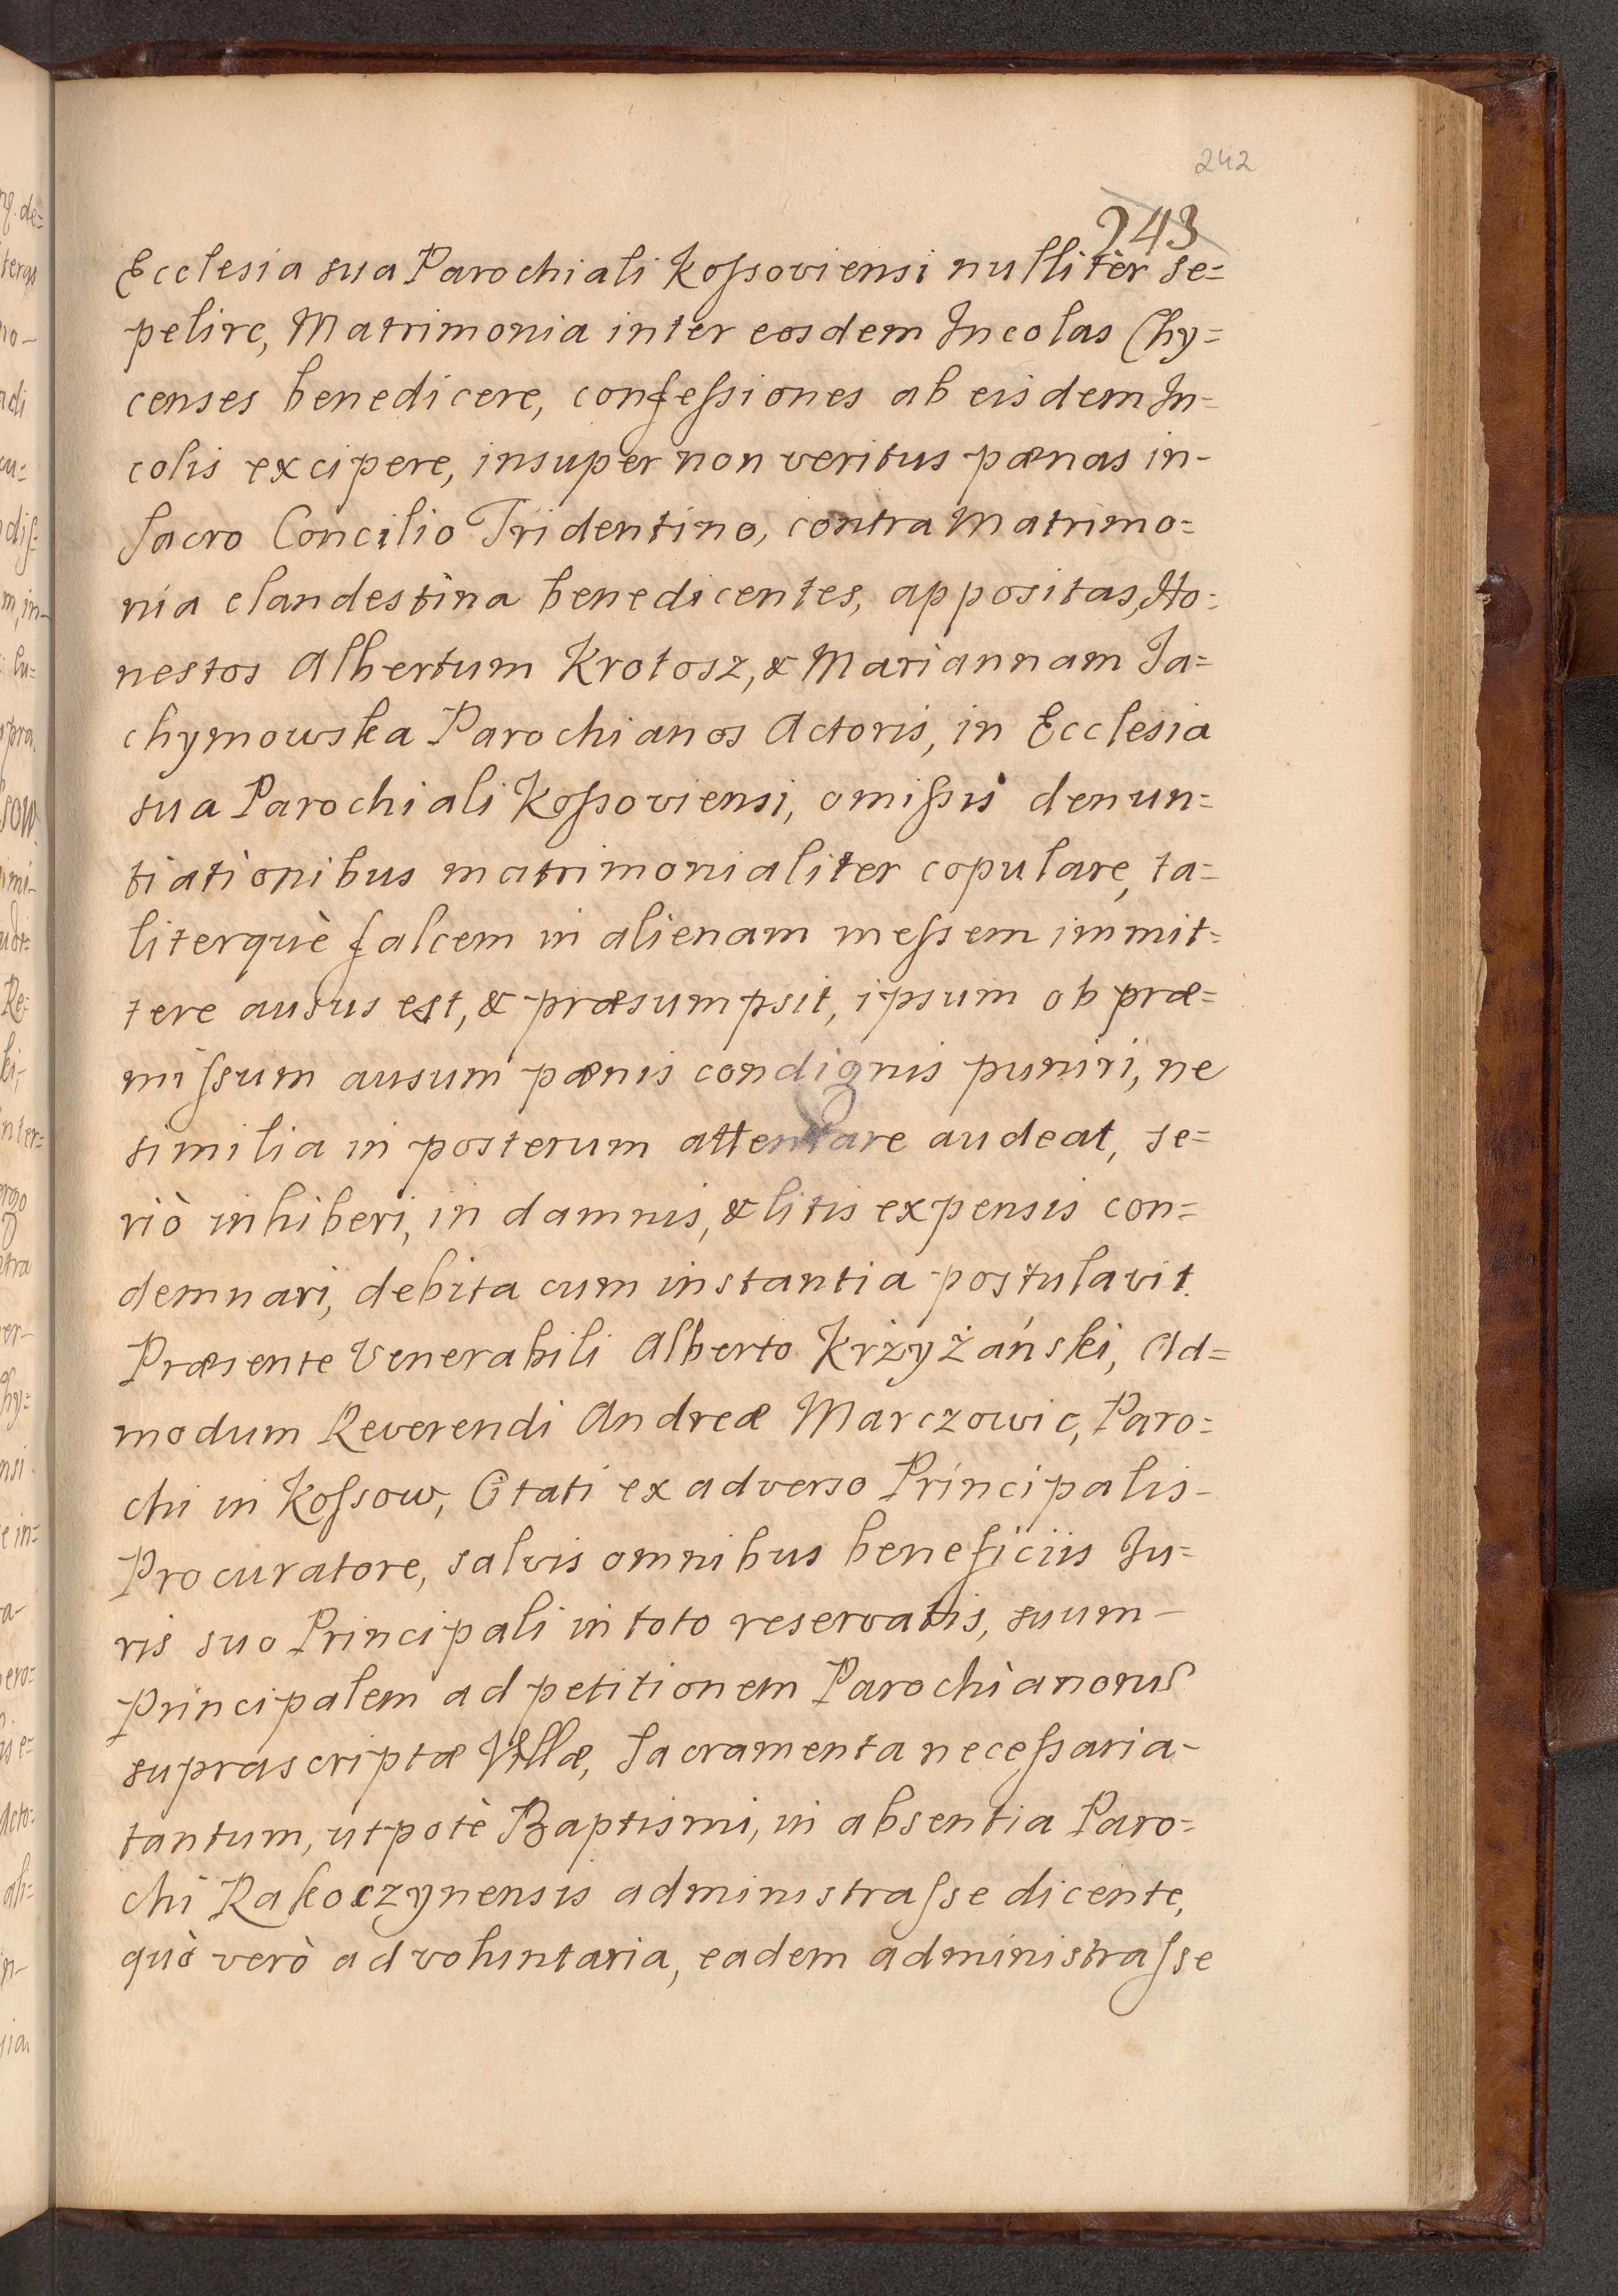 242
243
Ecclesia sua Parochiali Koſsoviensi nullitèr se=
pelire, Matrimonia inter eosdem Incolas Chy=
censes benedicere, confeſsiones ab eisdem In=
colis excipere, insuper non veritus pœnas in-
Sacro Concilio Tridentino, contra Matrimo=
nia clandestina benedicentes, appositas, Ho=
nestos Albertum Krotosz, & Mariannam Ja=
chymowska Parochianos Actoris, in Ecclesia
sua Parochiali Koſsoviensi, omiſsis denun=
tiationibus matrimonialiter copulare, ta=
literquè falcem in alienam meſsem immit=
tere ausus est, & præsumpsit, ipsum ob præ=
miſsum ausum pœnis condignis puniri, ne
similia in posterum attentare audeat, se=
riò inhiberi, in damnis, & litis expensis con=
demnari, debita cum instantia postulavit.
Præsente Venerabili Alberto Krżyżański, Ad=
modum Reverendi Andreæ Marczowic, Paro=
chi in Koſsow, Citati ex adverso Principalis-
Procuratore, salvis omnibus beneficiis Ju=
ris suo Principali in toto reservatis, suum-
Principalem ad petitionem Parochianorum
suprascriptæ Villæ, Sacramenta neceſsaria-
tantum, utpotè Baptismi, in absentia Paro=
chi Rakoczynensis administraſse dicente,
quò verò ad voluntaria, eadem administraſse